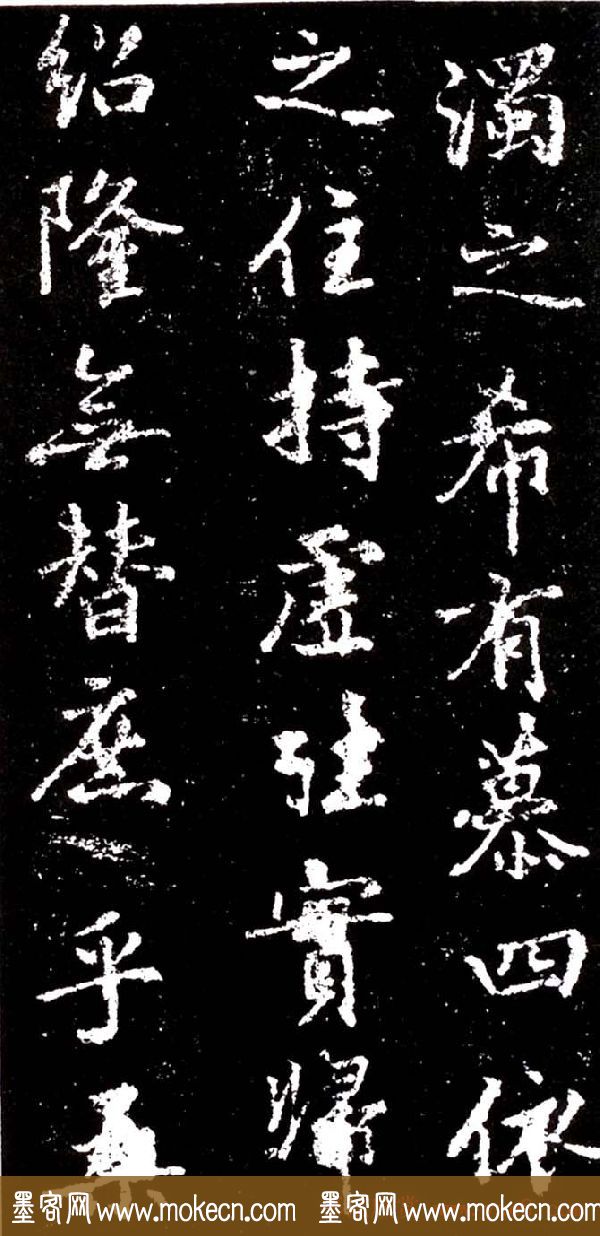 濁之希有慕四依
之住持虛往實歸
紹隆無替庶乎
墨客网 www.mokecn.com 墨客网 www.mokecn.com